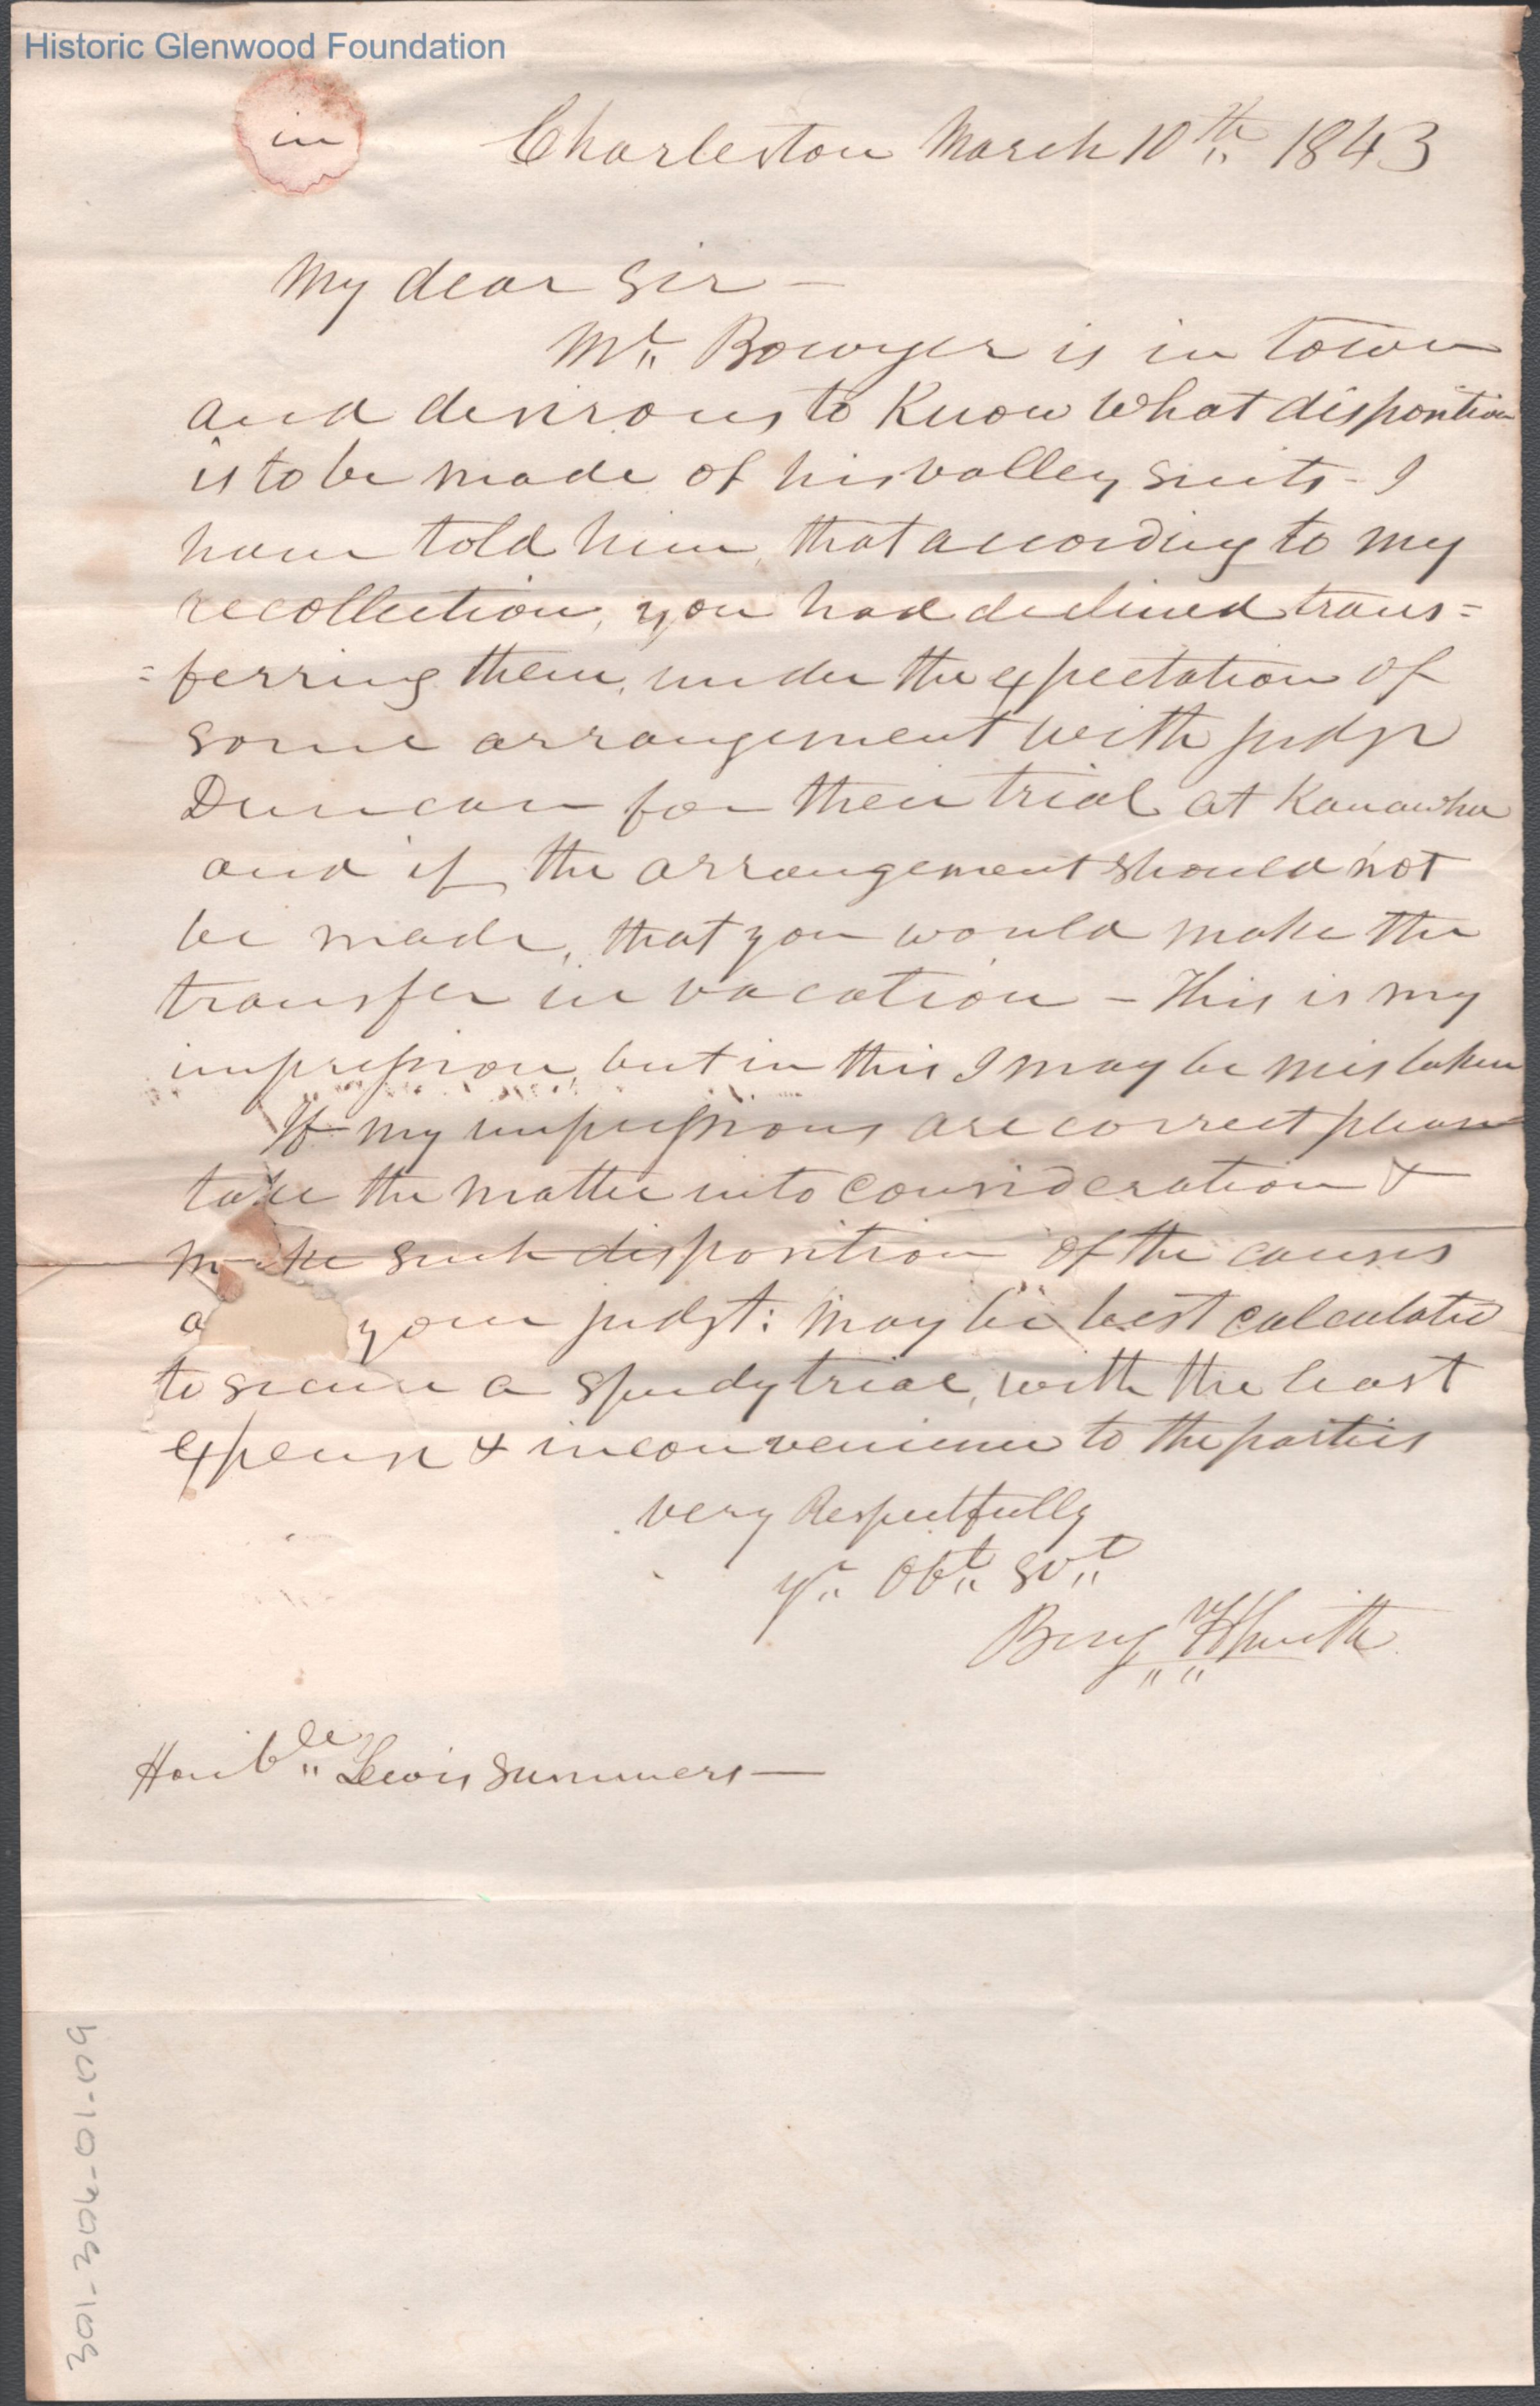 Historic Glenwood Foundation
in
Charleston March 10th 1843
My dear Sir —
Mr Bowyer is in town
and desirous to know what disposition
is to be made of his valley suits - I
have told him, that according to my
recollection, you had declined trans=
=ferring them, under the expectation of
some arrangement with judge
Duncan for their trial at Kanawha
and if the arrangement should not
be made, that you would make the
transfer in vacation — This is my
impression, but in this I may be mistaken
If my impressions are correct please
take the matter into consideration &
make such disposition of the causes
a your judgt: may be best calculated
to secure a speedy trial, with the least
expense & inconvenience to the parties
very Respectfully
yr Obt Svt
Benj H Smith
Honble Lewis Summers —
301-306-01-09